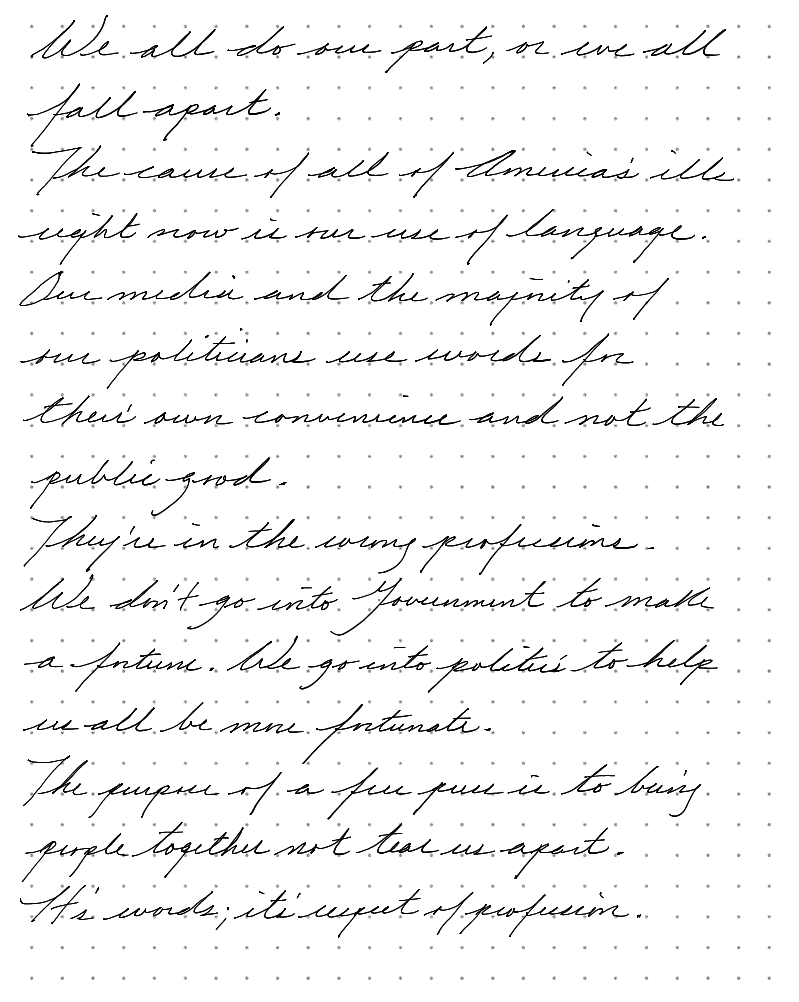 We all do our part, or we all
fall apart.
The cause of all of America's ills
right now is our use of language.
Our media and the majority of
our politicians use words for
their own convenience and not the
public good.
They're in the wrong professions.
We don't go into Government to make
a fortune. We go into politics to help
us all be more fortunate.
The purpose of a free press is to bring
people together not tear us apart.
It's words; it's respect of profession.